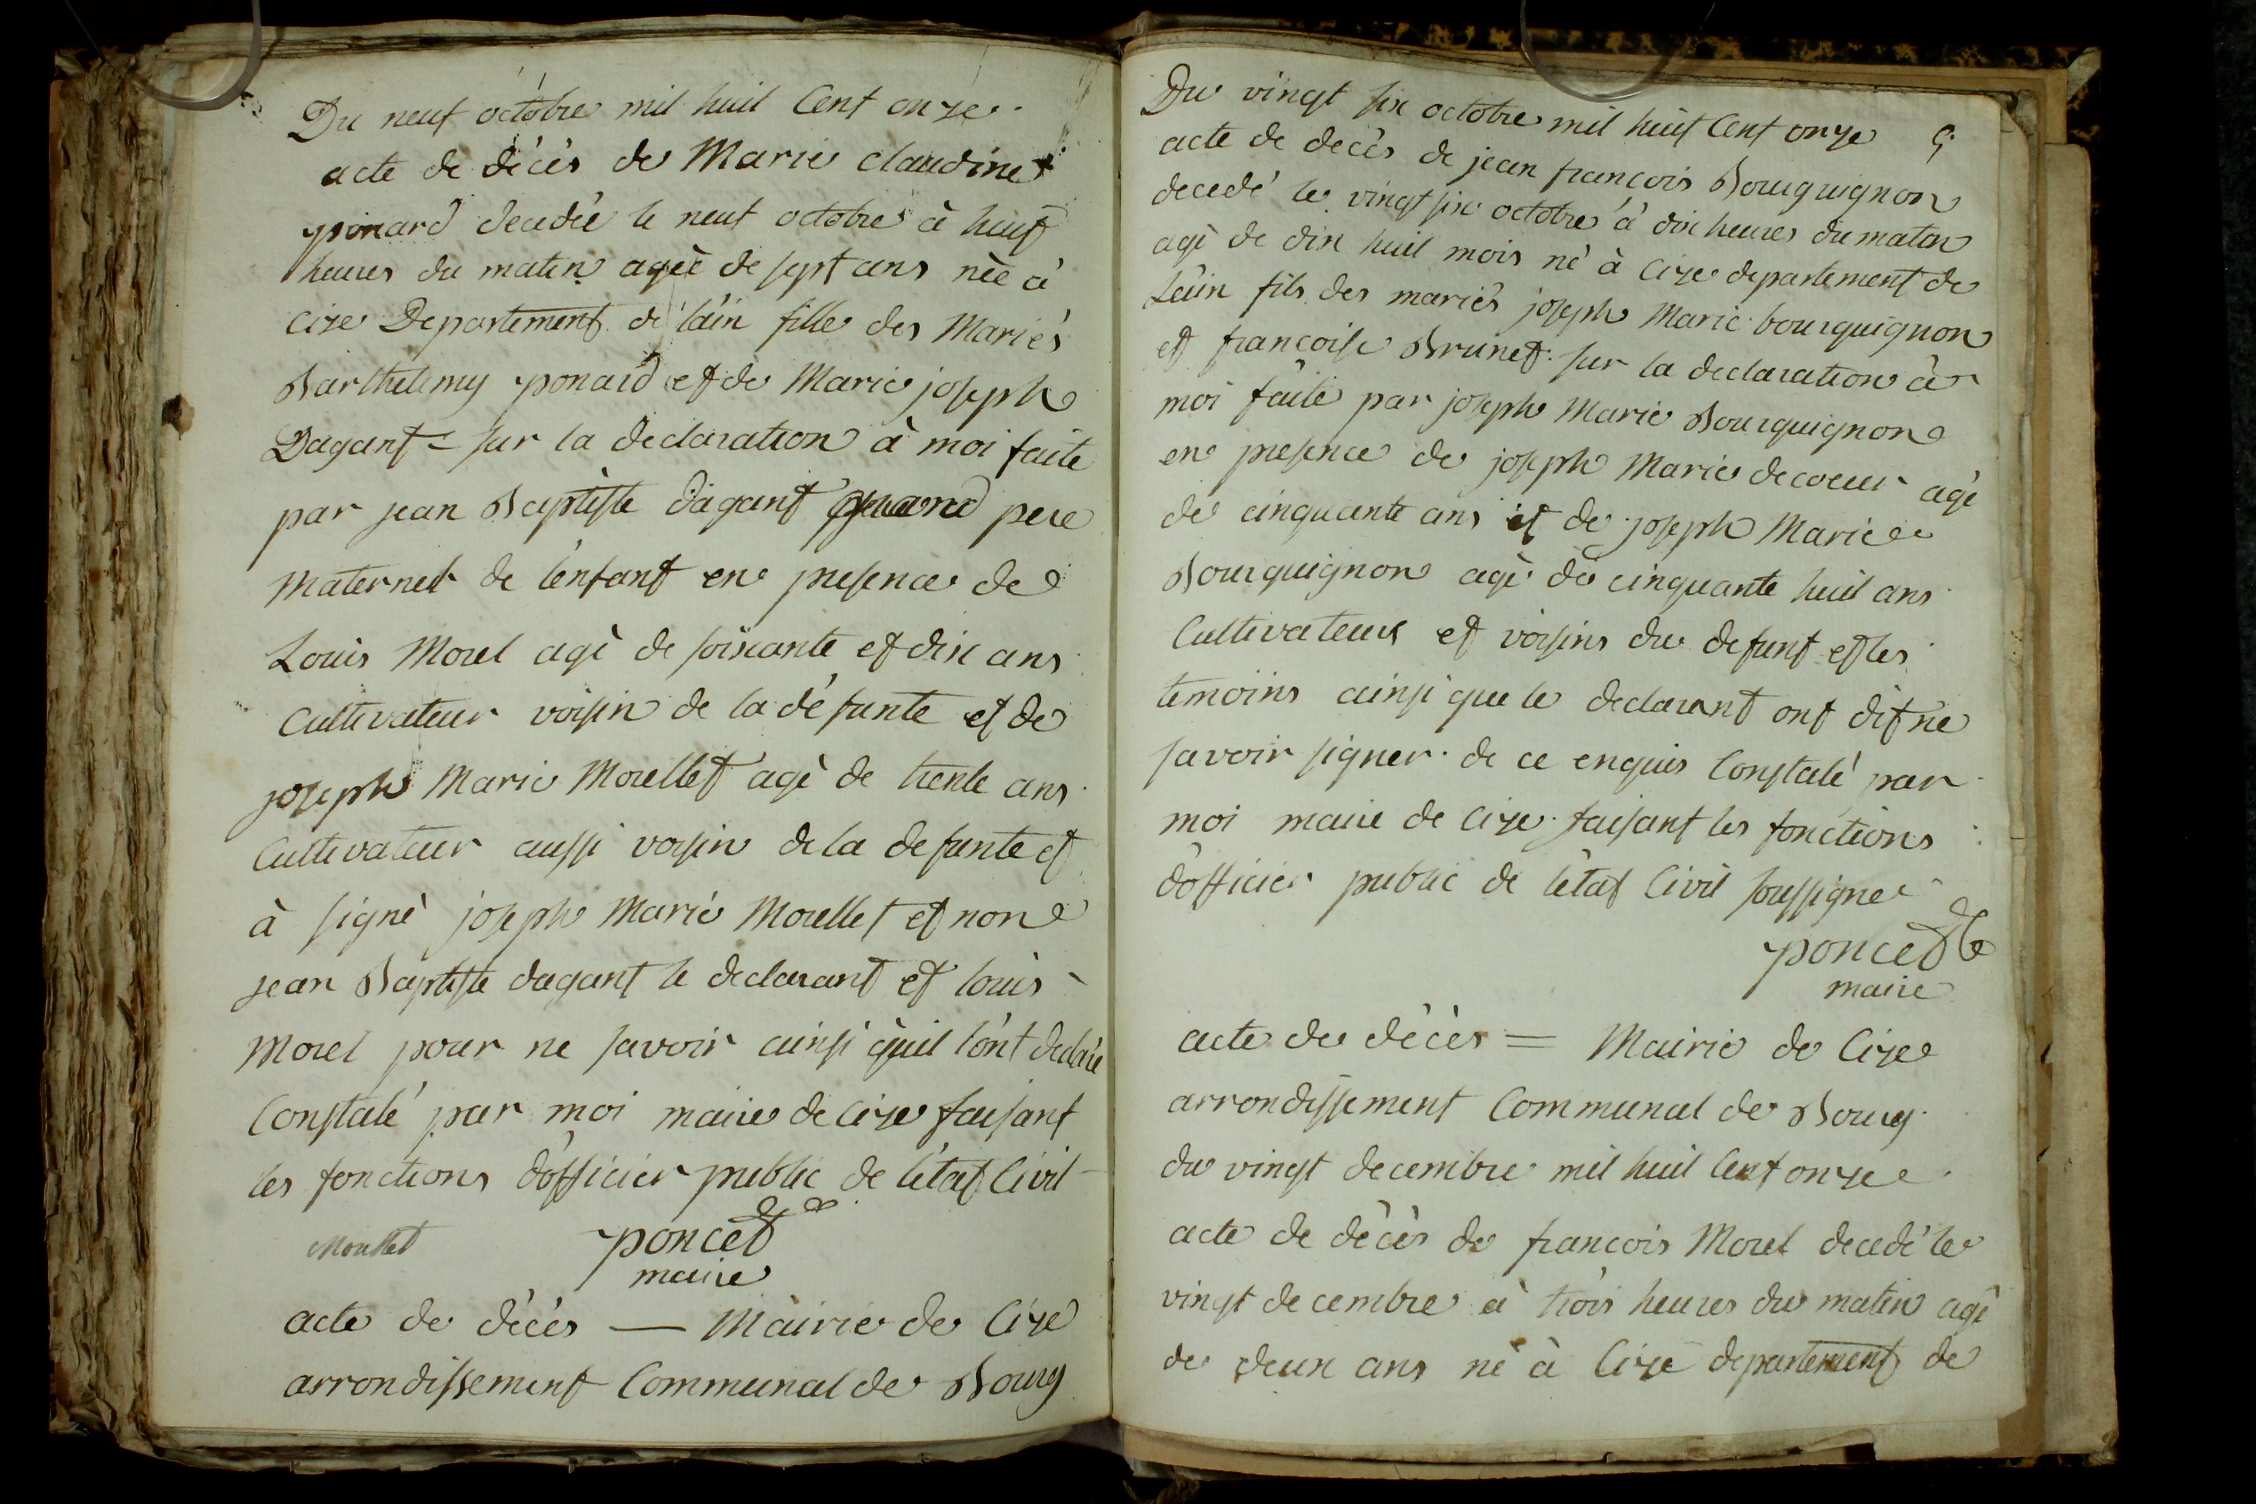 Du neuf octobre mil huit Cent onze
acte de décès de Marie claudine
ponard decedée le neuf octobre à huit
heures du matin agèe de sept ans nèe à
cize Departement de l'ain fille des Mariés
Barthelemy ponard et de Marie joseph
Dagant = sur la declaration à moi faite
par jean Baptiste dagant grand pere
maternel de l'enfant en presence de
Louis Morel agè de soixante et dix ans
cultivateur voisin de la défunte et de
joseph Marie Morellet agè de trente ans
cultivateur aussi voisin de la defunte et
à signè joseph Marie Morellet et non
jean Baptiste dagant le declarant et louis
Morel pour ne savoir ainsi qu'il l'ont declaré
Constaté par moi maire de cize faisant
les fonctions d'officier public de l'état Civil
Morellet poncet
maire
acte de décès — Mairie de Cize
arrondissement Communal de Bourg
Du vingt six octobre mil huit Cent onze
acte de decès de jean françois Bourguignon
decedé le vingt six octobre à dix heures du matin
agè de dix huit mois né à Cize departement de
L'ain fils des mariés joseph Marie bourguignon
et françoise Brunet sur la declaration à
moi faite par joseph Marie Bourguignon
en presence de joseph Marie decoeur agè
de cinquante ans et de joseph Marie
Bourguignon agè de cinquante huit ans
Cultivateurs et voisins du defunt et les
temoins ainsi que le declarant ont dit ne
savoir signer de ce enquis Constaté par
moi maire de Cize faisant les fonctions
d'officier public de l'état Civil soussigne
poncet
maire
acte de décès = Mairie de Cize
arrondissement Communal de Bourg
du vingt decembre mil huit Cent onze
acte de décès de françois Morel decedé le
vingt decembre à trois heures du matin agè
de deux ans nè à Cize departement de